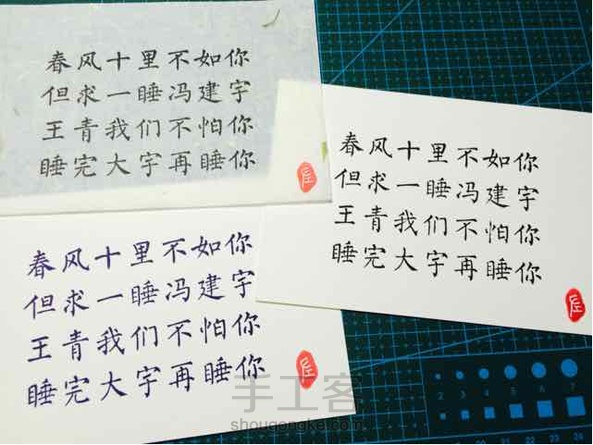 春风十里不如你
但求一睡冯建宇
王青我们不怕你
睡完大宇再睡你
春风十里不如你
但求一睡冯建宇
王青我们不怕你
睡完大宇再睡你
春风十里不如你
但求一睡冯建宇
王青我们不怕你
睡完大宇再睡你
手工客
shougongke.com